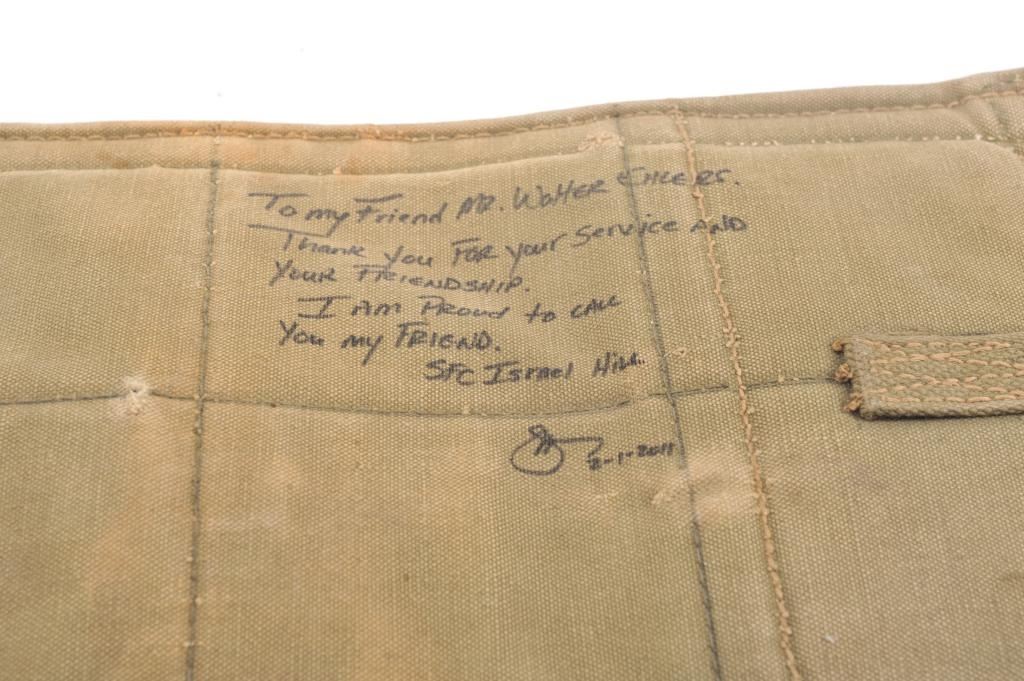 To my Friend MR. Walter Ehlers.
Thank you FOR your Service AND
Your FRIENDSHIP.
I Am Proud to CALL
You my FRIEND.
SFC Israel Hill.
2-1-2011